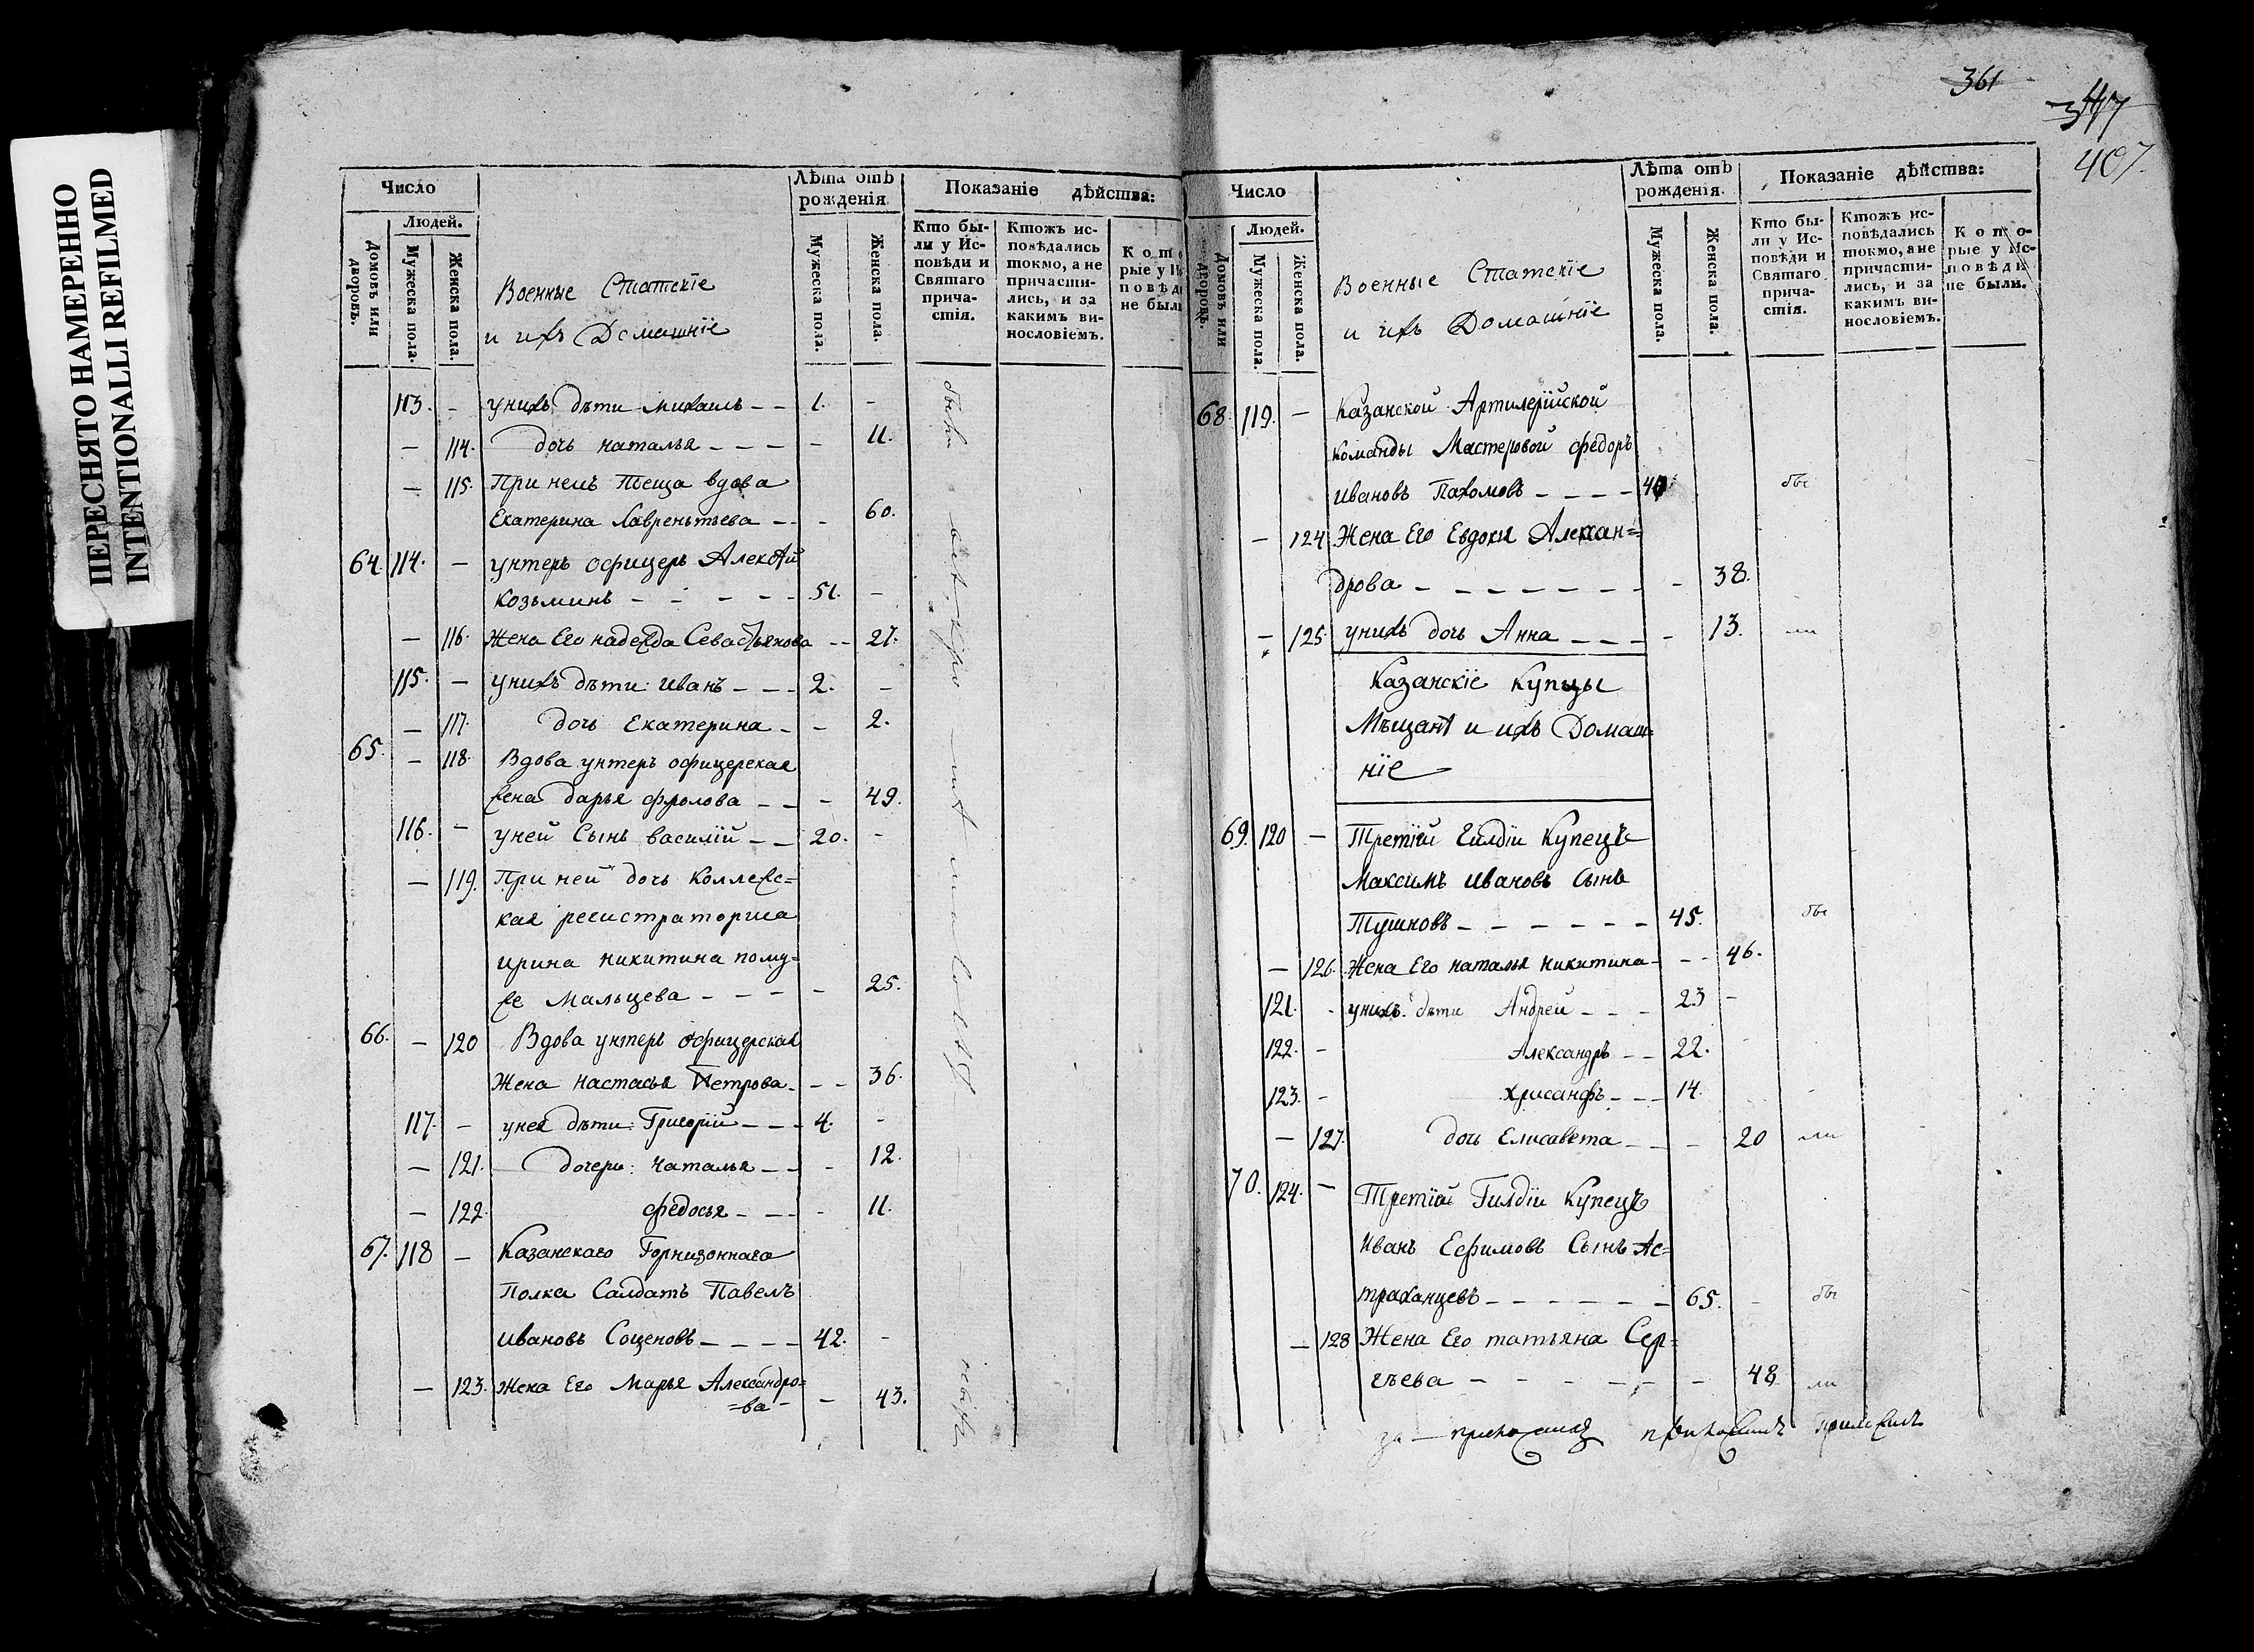 ПЕРЕСНЯТО НАМЕРЕННО
INTENTIONALLI REFILMED
Число
Людей.
Домовъ или дворовъ.
Мужеска пола.
Женска пола.
Военные Статскіе
и ихъ Домашніе
Лѣта отъ
рожденія
Мужеска пола.
Женска пола.
Показаніе дѣйства:
Кто бы-
ли у Ис-
повѣди и
Святаго
прича-
стія.
Ктожъ ис-
повѣдались
токмо, а не
причасти-
лись, и за
какимъ ви-
нословіемъ.
Кото
рые у И
повѣд
не был
113. - унихъ дѣти Михаилъ - - 1. -
- 114. дочь наталья - - - - 11.
- 115. При немъ Теща вдова
Екатерина Лаврентьева - - - 60.
64. 114. - унтеръ офицеръ Алексѣй
Козьминъ - - - - - 51. -
- 116. Жена Его надежда Севастьянова - - 27.
115. - унихъ дѣти: Иванъ - - - 2. -
- 117. дочь Екатерина - - 2.
65. - 118. Вдова унтеръ офицерская
жена дарья фролова - - - 49.
116. - уней Сынъ василій - - 20. -
- 119. При ней дочь Коллежс=
кая регистраторша
ирина никитина пому=
же Мальцева - - - - 25.
66. - 120 Вдова унтеръ офицерская
Жена настасья Петрова - - - 36.
117. - унея дѣти: Григорій - - - 4. -
- 121. дочери: наталья - - - 12.
- 122. федосья - - - - 11.
67. 118 - Казанскаго Горнизоннаго
Полка Салдатъ Павелъ
ивановъ Соценовъ - - - - 42. -
- 123. Жена Его Марья Александро=
=ва - - 43.
361
407.
Число
Людей.
Домовъ или дворовъ.
Мужеска пола.
Женска пола.
Военные Статскіе
и ихъ Домашніе
Лѣта отъ
рожденія.
Мужеска пола.
Женска пола.
Показаніе дѣйства:
Кто бы-
ли у Ис-
повѣди и
Святаго
прича-
стія.
Ктожъ ис-
повѣдались
токмо, а не
причасти-
лись, и за
какимъ ви-
нословіемъ.
Кото-
рые у Ис-
повѣди
не были.
68. 119. - Казанской Артилерійской
команды Мастеровой федоръ
ивановъ Пахомовъ - - - - бы
- 124 Жена Его Евдокя Алексан=
дрова - - - - - - - - 38.
- 125. унихъ дочь Анна - - - - 13. ли
Казанскіе купцы
Мѣщанѣ и ихъ Домаш=
ніе
69. 120 - Третій Гилдіи Купецъ
Максимъ ивановъ Сынъ
Тушновъ - - - - - - 45. бы
- 126. Жена Его наталья никитина - - - 46.
121. - унихъ дѣти Андрей - - - 23 -
122. - Александръ - - 22.
123. - Хрисанфъ - - - 14.
- 127. дочь Елисавета - - - 20 ли
70. 124. - Третій Гилдіи Купецъ
Иванъ Ефимовъ Сынъ Ас=
траханцевъ - - - - - - 65. - бы
- 128 Жена Его татьяна Сер=
гѣева - - - - - - - 48 ли